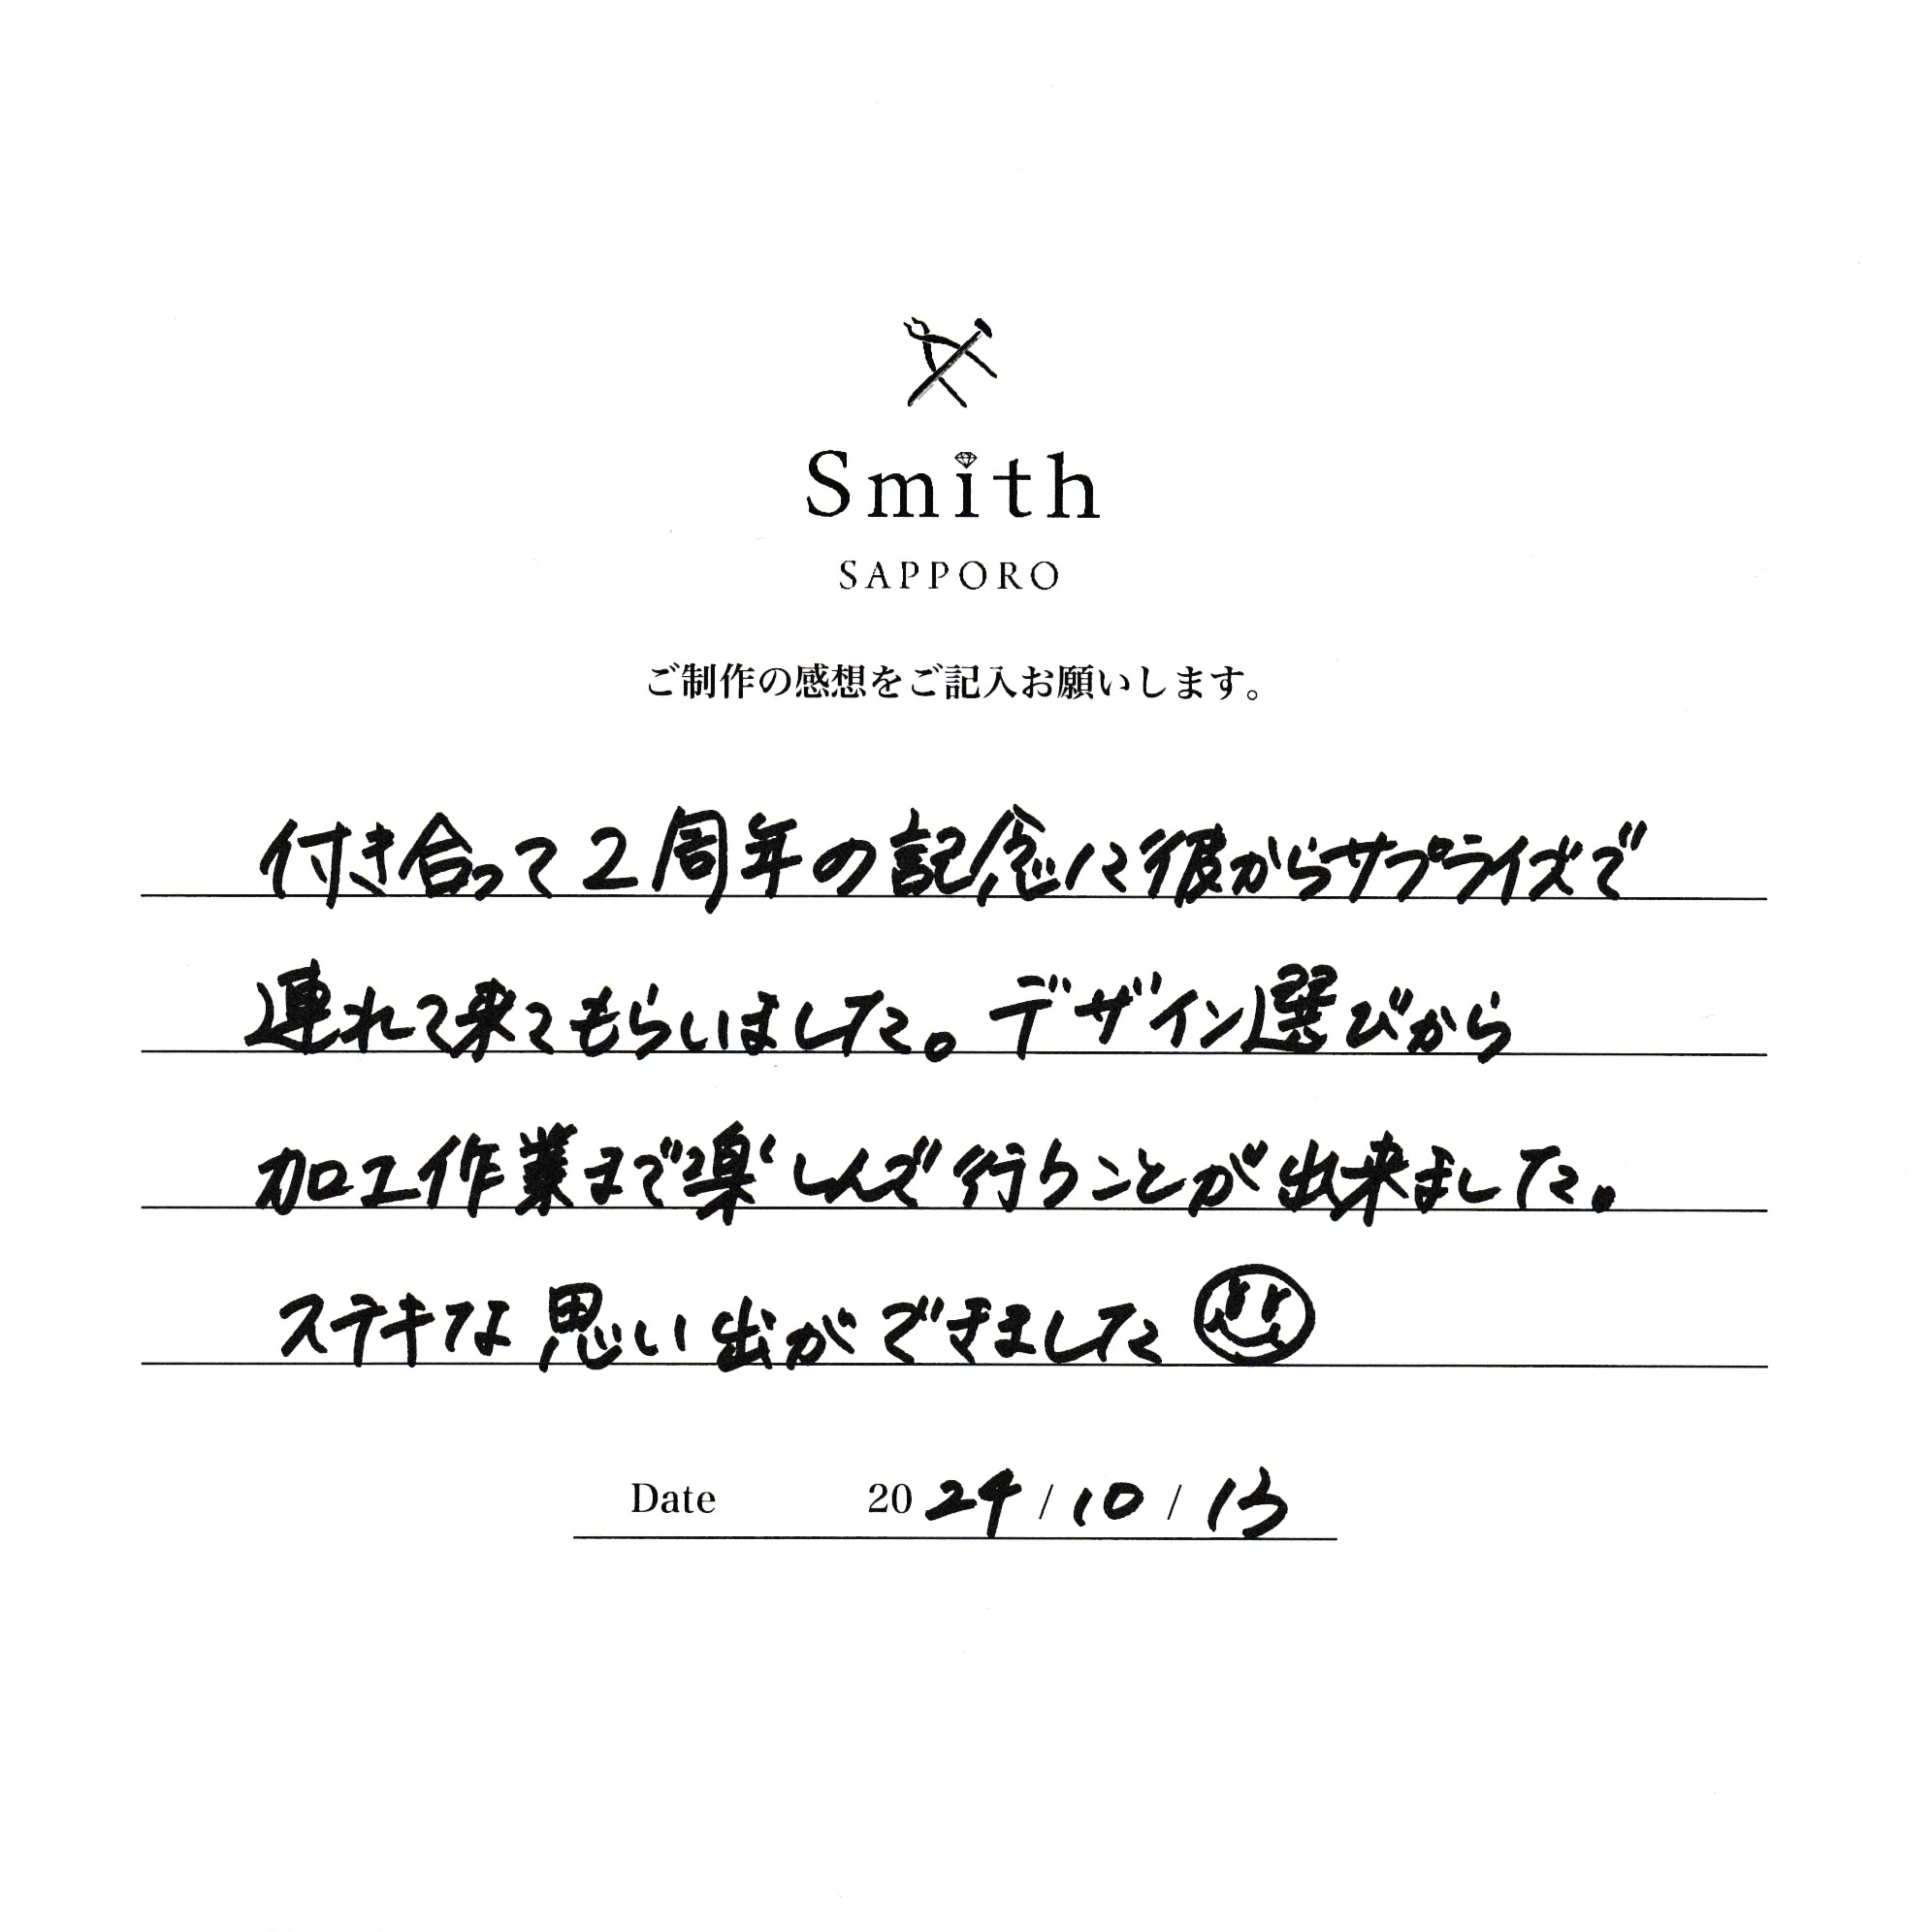 Smith
SAPPORO
ご制作の感想をご記入お願いします。
付き合って2周年の記念に彼からサプライズで
連れて来てもらいました。デザイン選びから
加工作業まで楽しんで行うことが出来ました。
ステキな思い出ができました
Date 2024/10/13